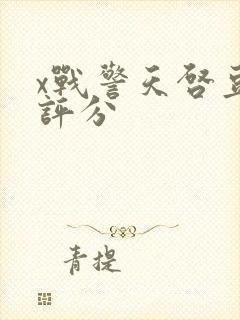 x戰警天啓豆
評分
青提